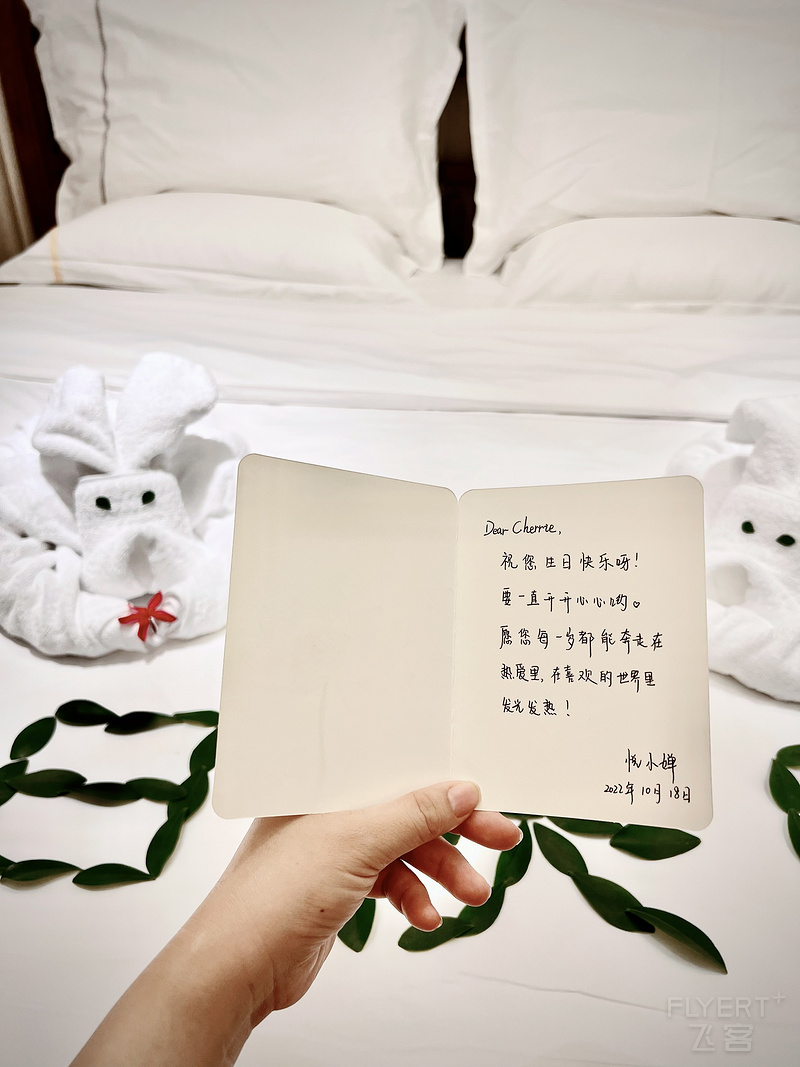 Dear Cherrie,
祝您生日快乐呀!
要一直开开心心哟♡
愿您每一岁都能奔走在
热爱里,在喜欢的世界里
发光发热!
悦小婵
2022年10月18日
FLYERT+
飞客